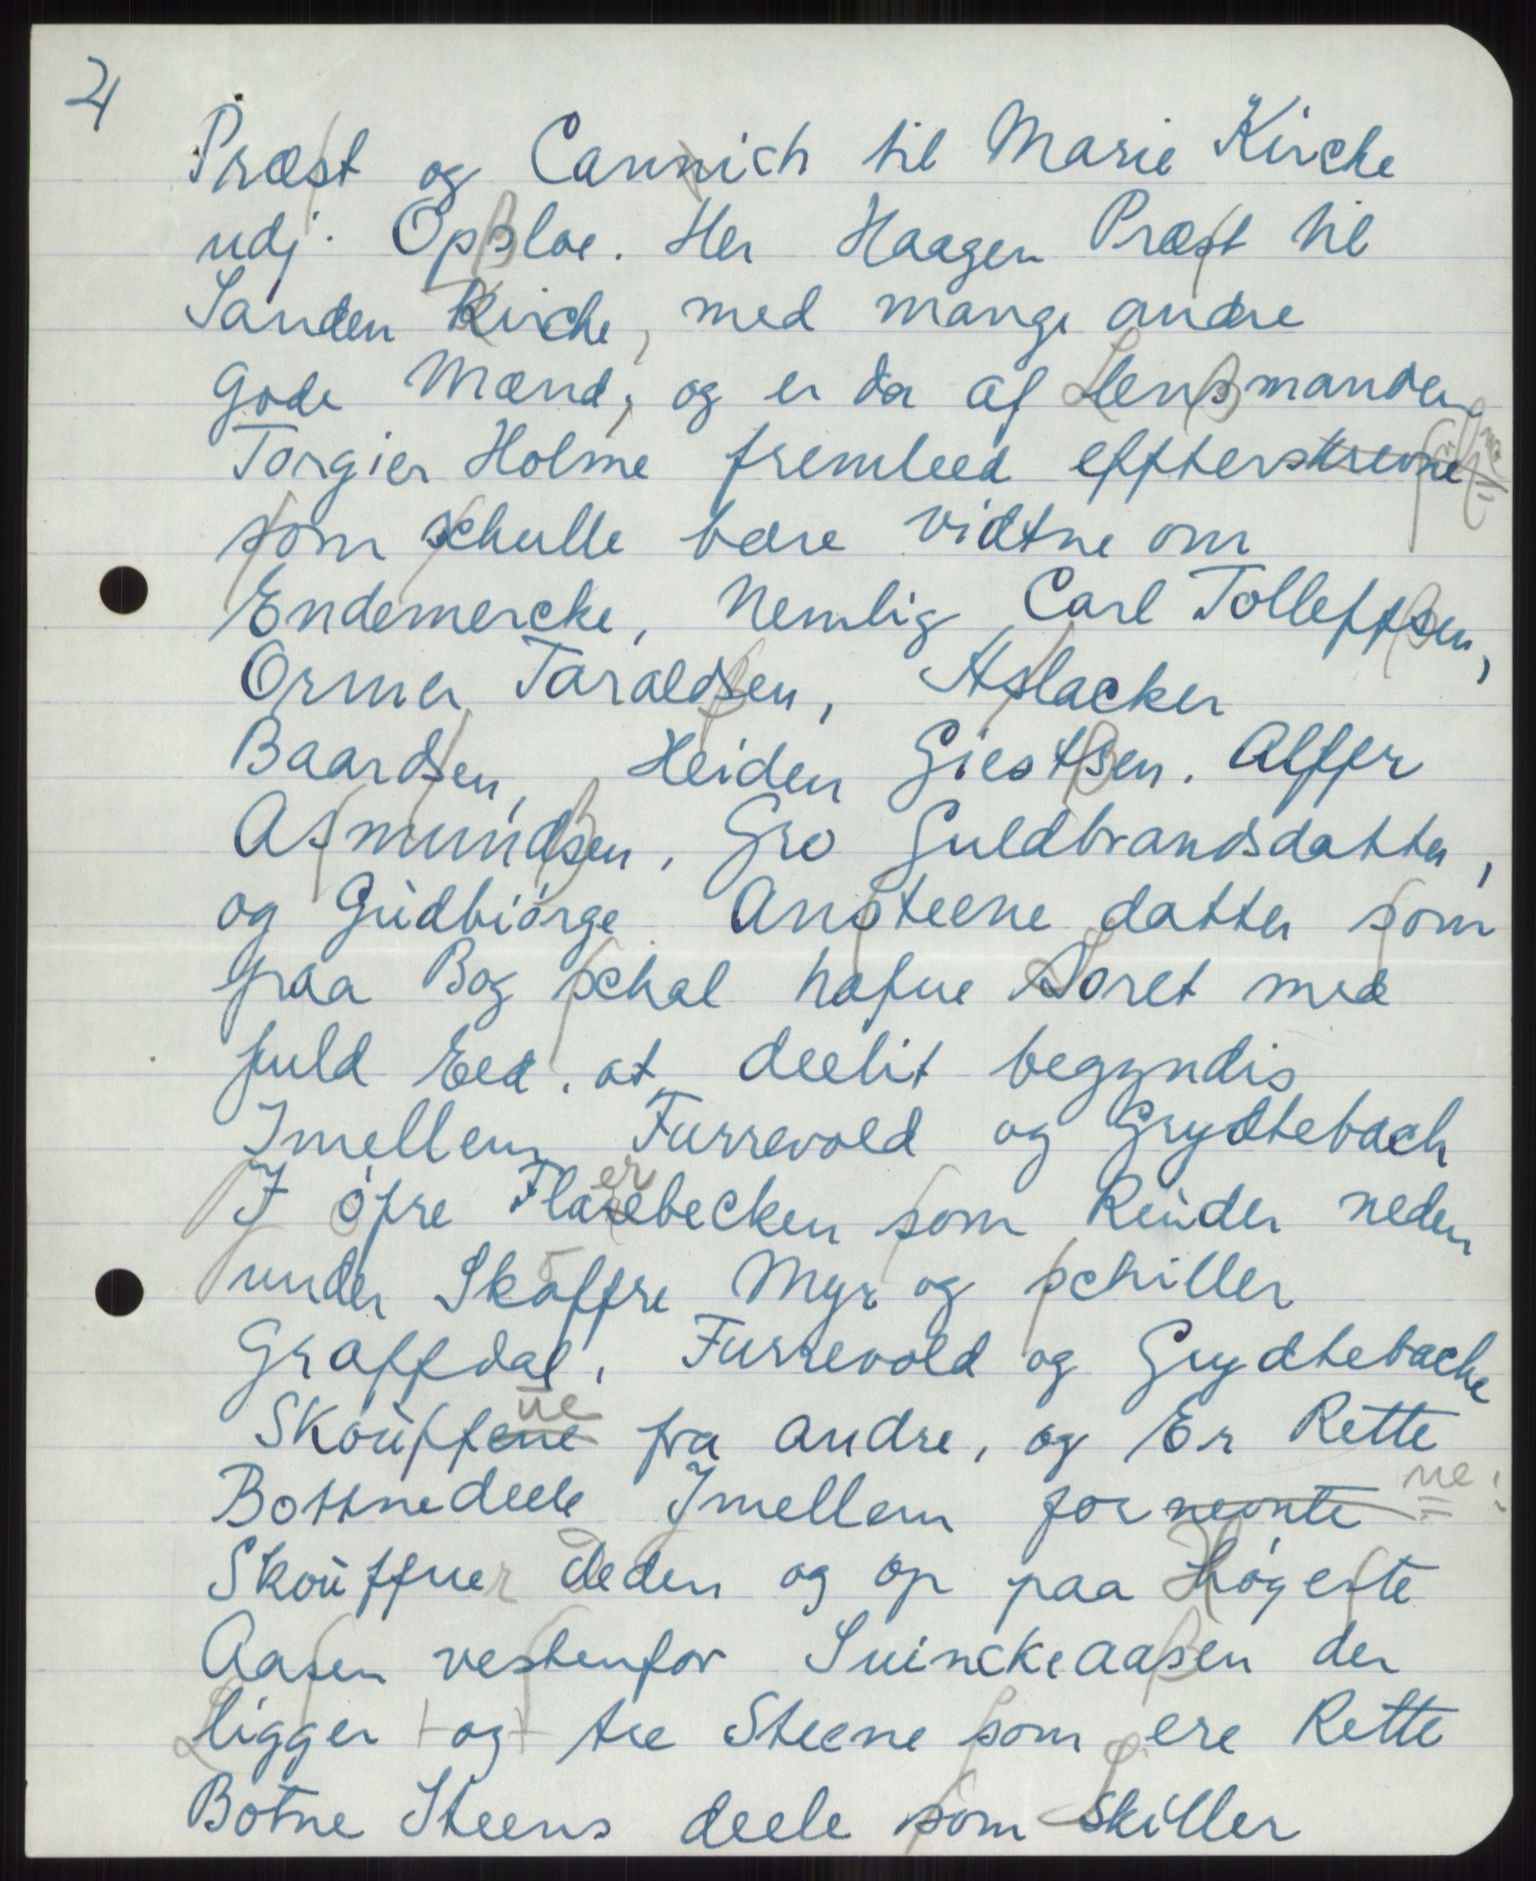 4
Præst og Cannich til Marie Kirche
udj. Opsloe. Her Haagen Præst til
Sanden Kirche, med mange andre
gode Mænd, og er da af Lensmanden
Torgier Holme fremleed effterskrevne
som schulle bære vidtne om
Endemercke, Nemlig Carl Tolleffsen,
Ormer Taraldsen, Aslacker
Baardsen, Heiden Giestsen. Alffr
Asmundsen, Gro Guldbrandsdatter,
og Gudbiørge Ansteene datter som
paa Bog schal hafue Soret med
fuld Eed. at deelit begyndis
Imellem Furrevold og Grydtebach
I øfre Flarebecken som Reinder neden
under Skoffre Myr og schiller
Graffdal, Furrevold og Grydtebache
Skouffene fra andre, og Er Rette
Bottnedeele Imellem fornevnte
Skouffuer deden og op paa Høgeste
Aasen vestenfor Suinckeaasen der
ligger og tre Steene som ere Rette
Botne Steens deele som Skiller